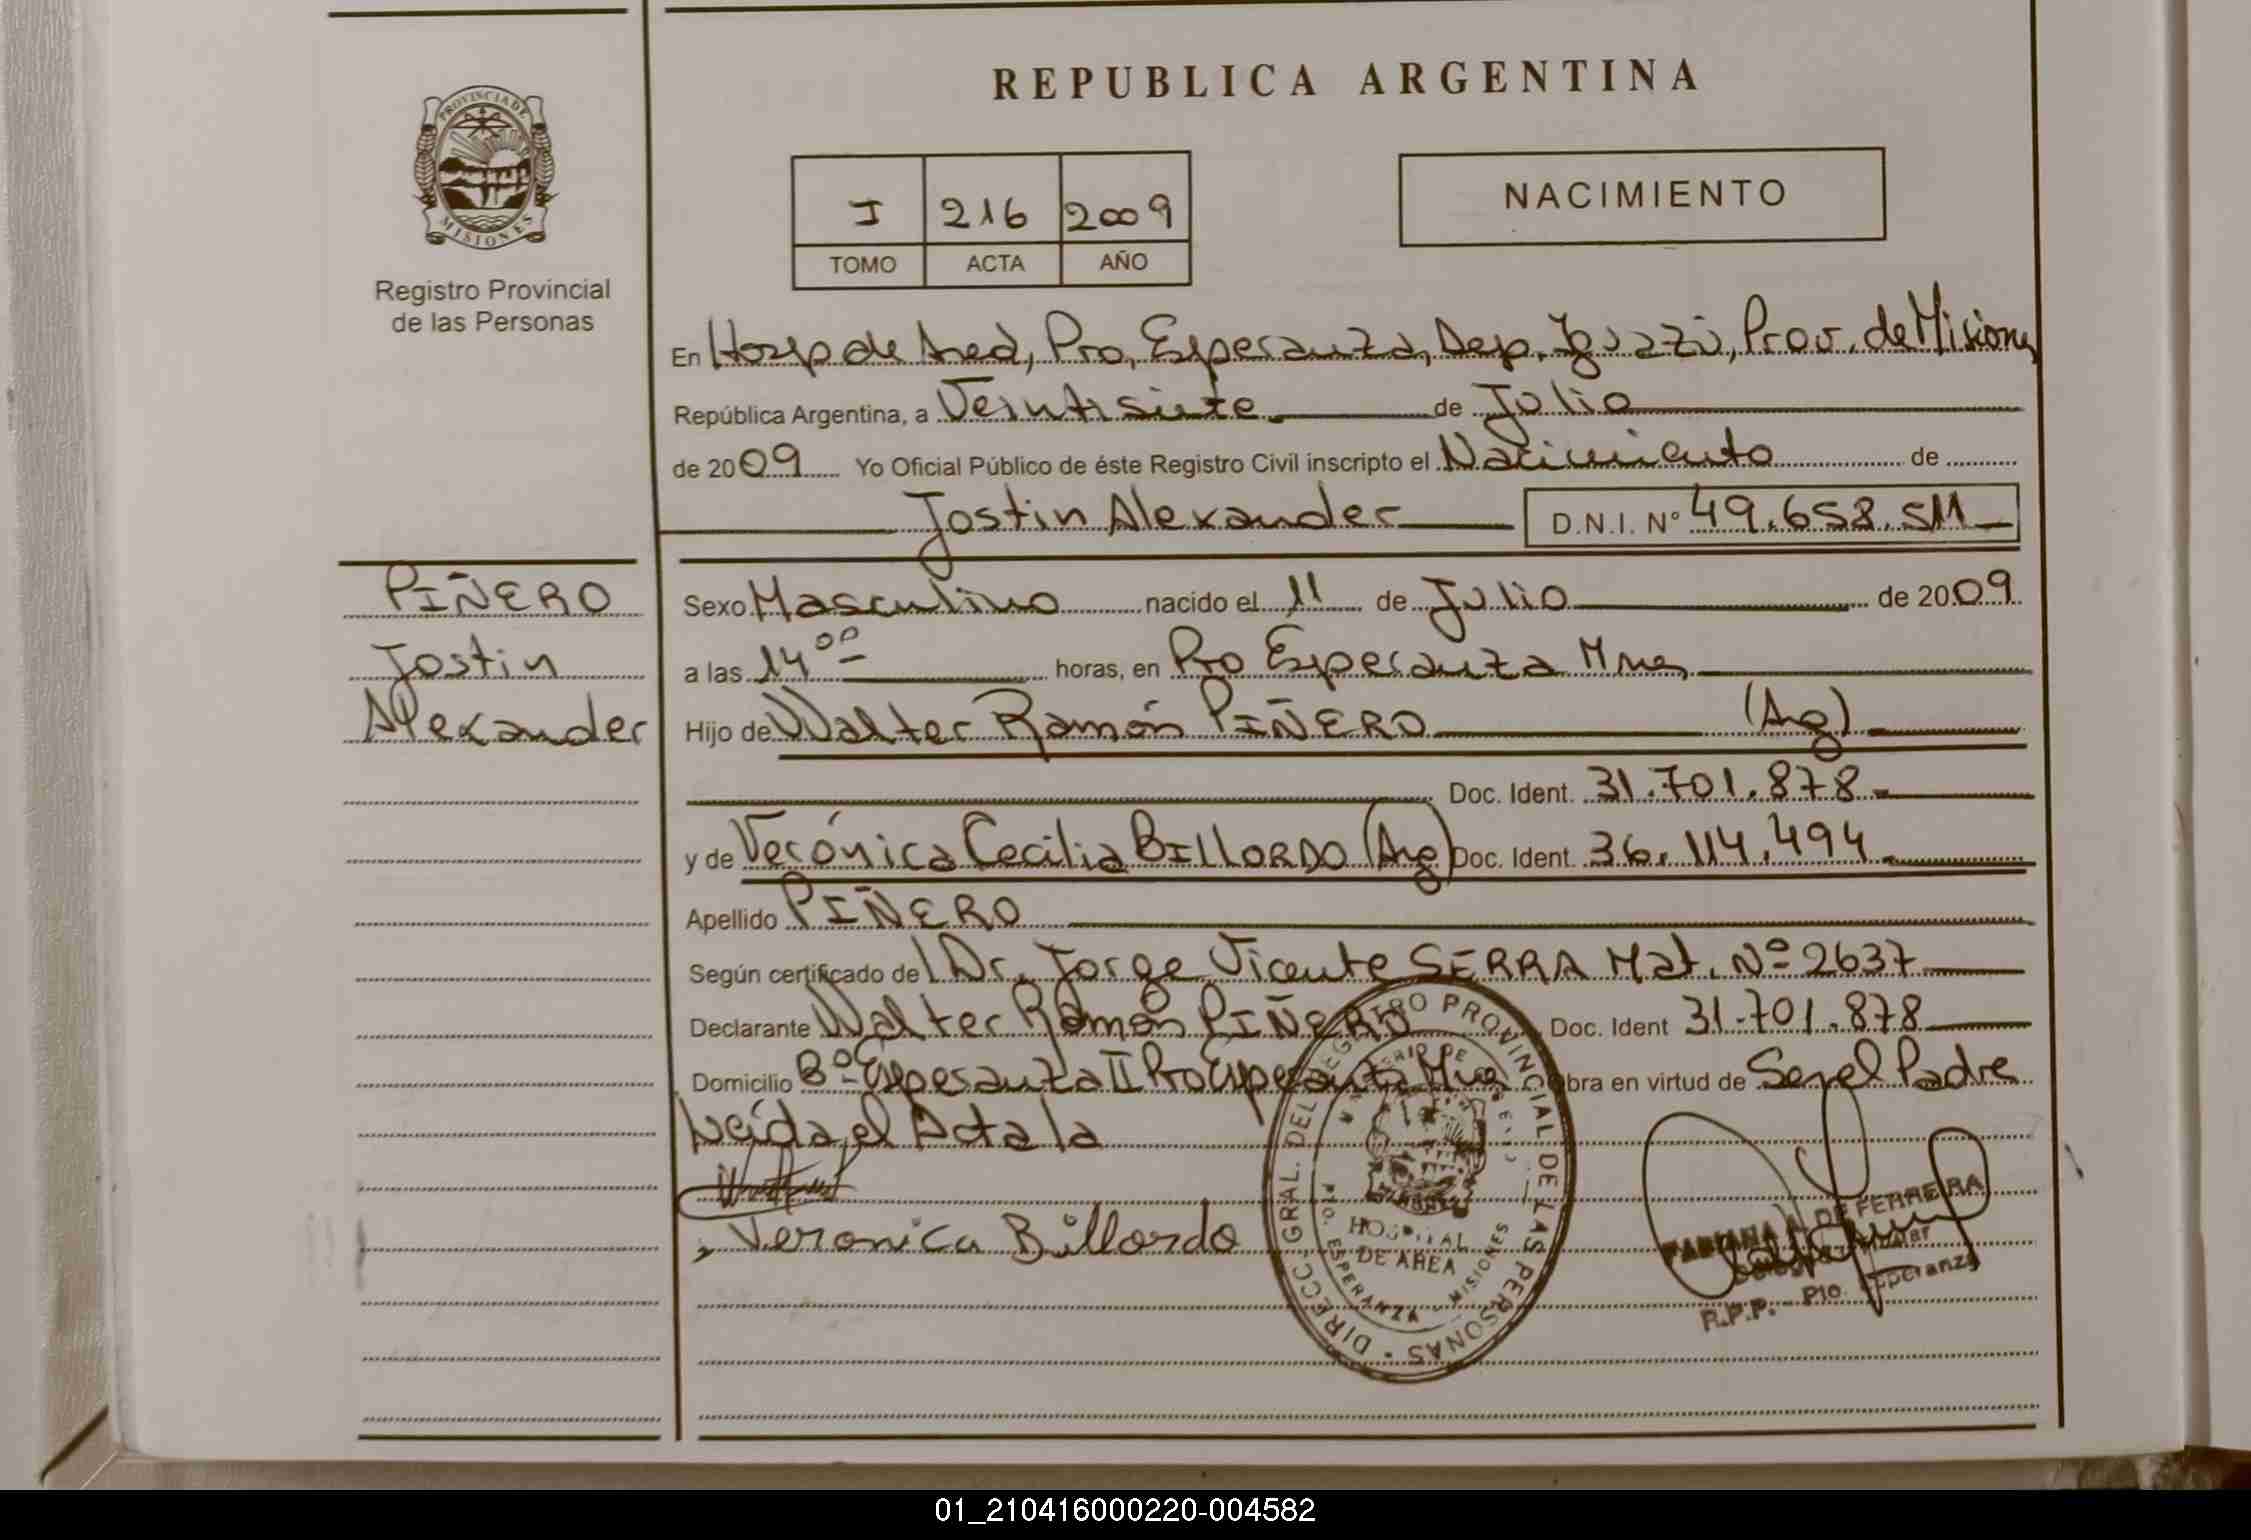 REPUBLICA ARGENTINA
PROVINCIA DE
MISIONES
Registro Provincial
de las Personas
I 216 2009
TOMO ACTA AÑO
NACIMIENTO
En Hosp de Area, Pto, Esperanza, Dep. Iguazú, Prov. de Misiones
República Argentina, a Veintisiete de Julio
de 2009 Yo Oficial Público de éste Registro Civil inscripto el Nacimiento de
Jostin Alexander D.N.I. Nº 49.658.511
PIÑERO
Jostin
Alexander
Sexo Masculino nacido el 11 de Julio de 2009
a las 14 00 horas, en Pto Esperanza Mnes
Hijo de Walter Ramón PIÑERO (Arg)
Doc. Ident. 31.701.878
y de Verónica Cecilia BILLORDO (Arg) Doc. Ident. 36.114.494
Apellido PIÑERO
Según certificado de l Dr. Jorge Vicente SERRA Mat. Nº 2637
Declarante Walter Ramón PIÑERO Doc. Ident 31.701.878
Domicilio Bº Esperanza II Pto Esperanza Mnes Obra en virtud de Ser el Padre
Leída el Acta la
Veronica Billordo
DIRECC. GRAL. DEL REGISTRO PROVINCIAL DE LAS PERSONAS
MINISTERIO DE
HOSPITAL
DE AREA
PTO. ESPERANZA - MISIONES
FABIANA DE FERREIRA
R.P.P. - Pto. Esperanza
01_210416000220-004582